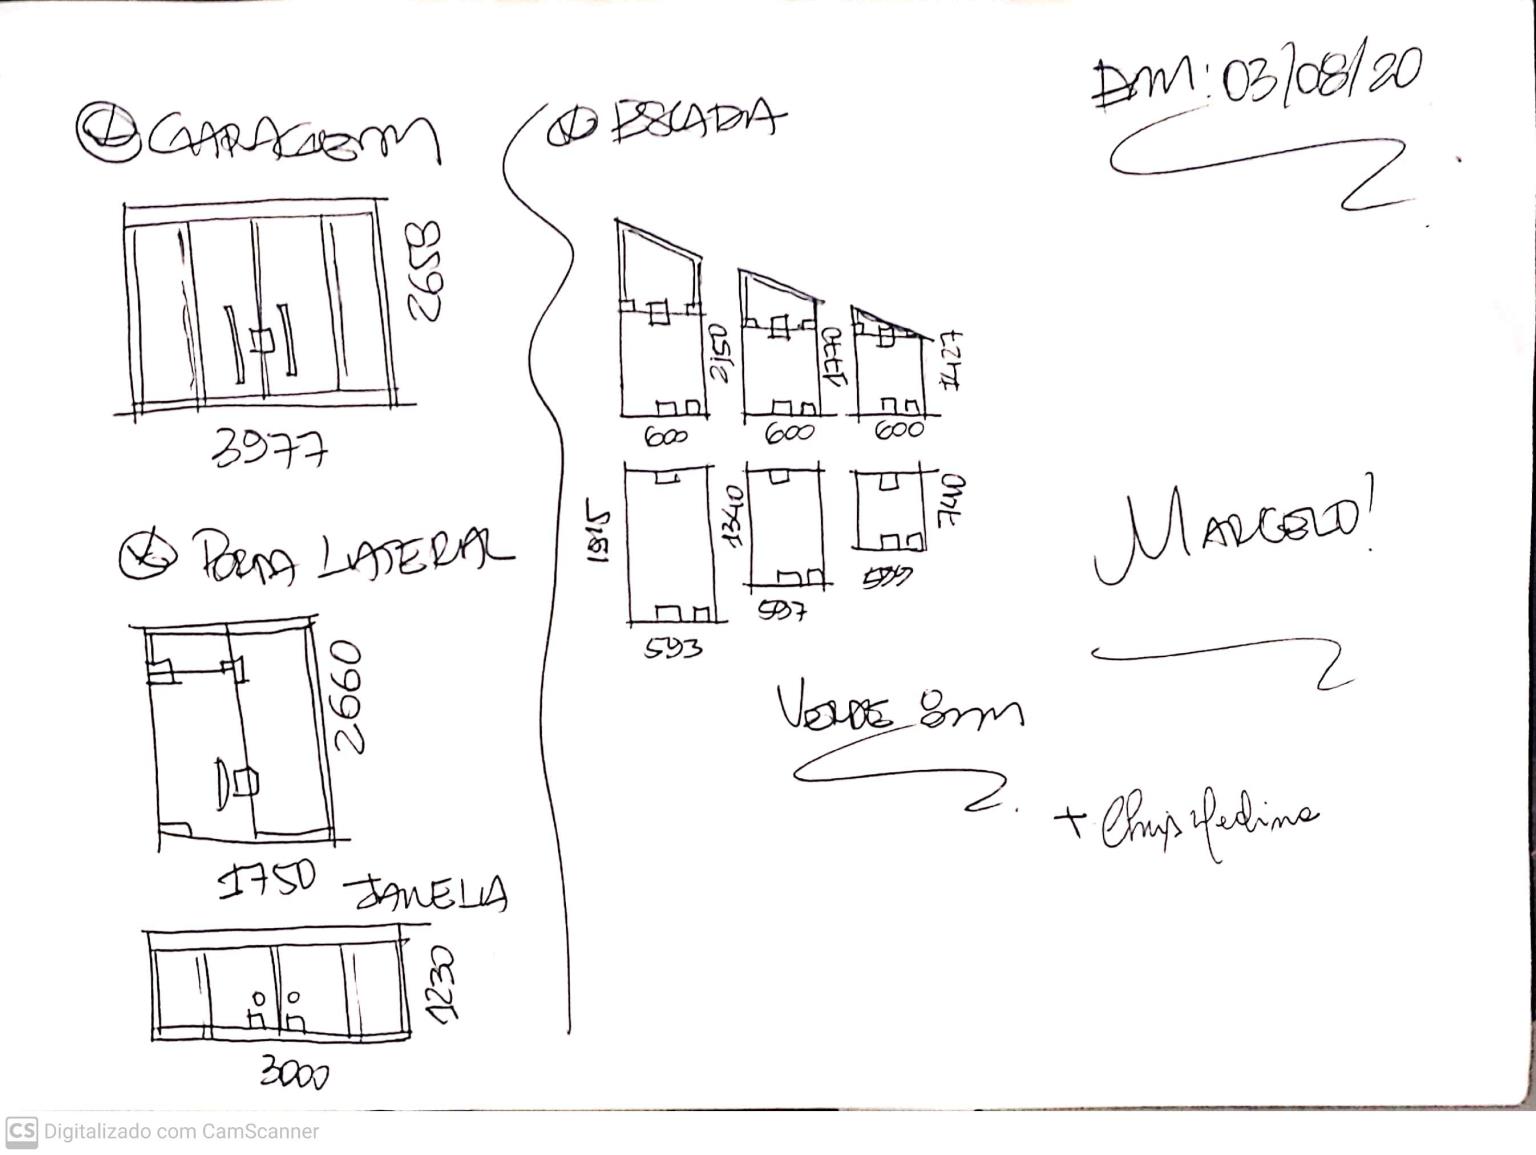 DM: 03/08/20
GARAGEM
2658
3977
PORTA LATERAL
2660
1750
JANELA
1230
3000
ESCADA
2150
1770
1427
600
600
600
1915
1340
740
593
597
599
VERDE 8mm
MARCELO!
+ Chris Medina
CS Digitalizado com CamScanner